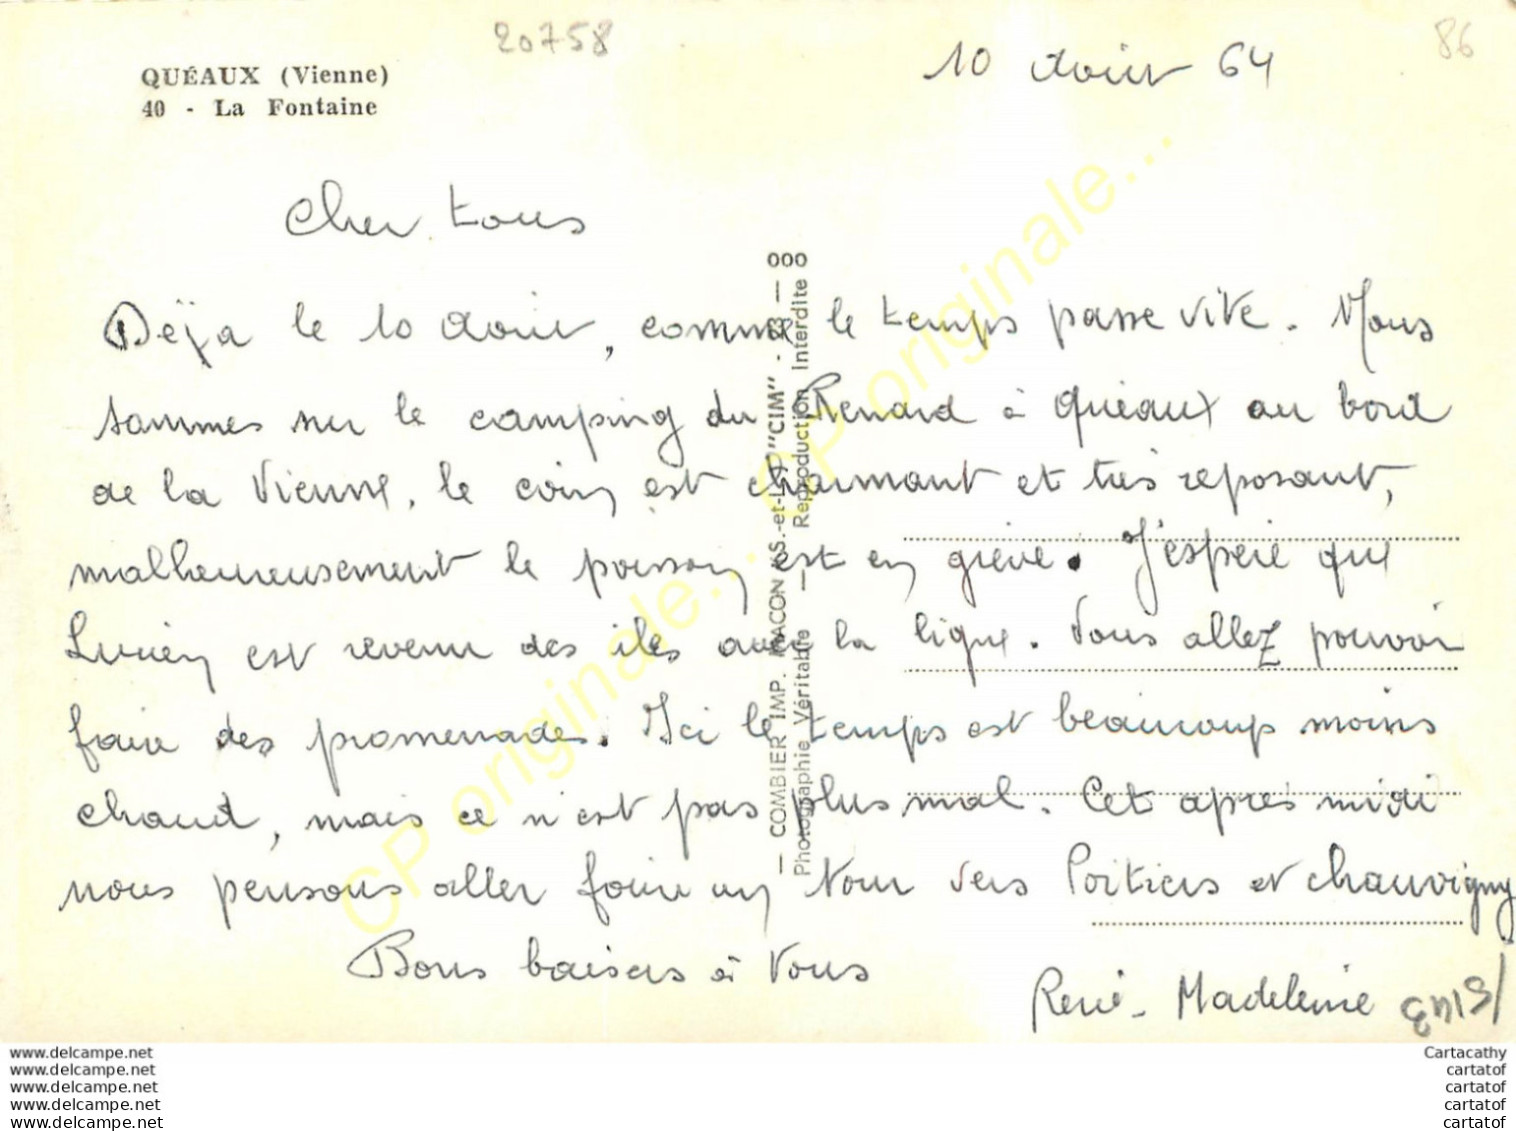 20758
86
QUÉAUX (Vienne)
40 - La Fontaine
10 Août 64
Cher tous
Déja le 10 Août, comme le temps passe vite. Nous
sommes sur le camping du Renard à Quéaux au bord
de la Vienne, le coin est charmant et très reposant,
malheureusement le poisson est en grève. J'espère que
Lucien est revenu des îles avec la ligne. Vous allez pouvoir
faire des promenades. Ici le temps est beaucoup moins
chaud, mais ce n'est pas plus mal. Cet après midi
nous pensons aller faire un tour vers Poitiers et Chauvigny
Bons baisers à Vous
René. Madeleine
— COMBIER IMP. MACON (S.-et-L.) "CIM" - 23 — 000
Photographie Véritable — Reproduction Interdite 0
CP originale...
CP originale...
www.delcampe.net
www.delcampe.net
www.delcampe.net
www.delcampe.net
www.delcampe.net
Cartacathy
cartatof
cartatof
cartatof
cartatof